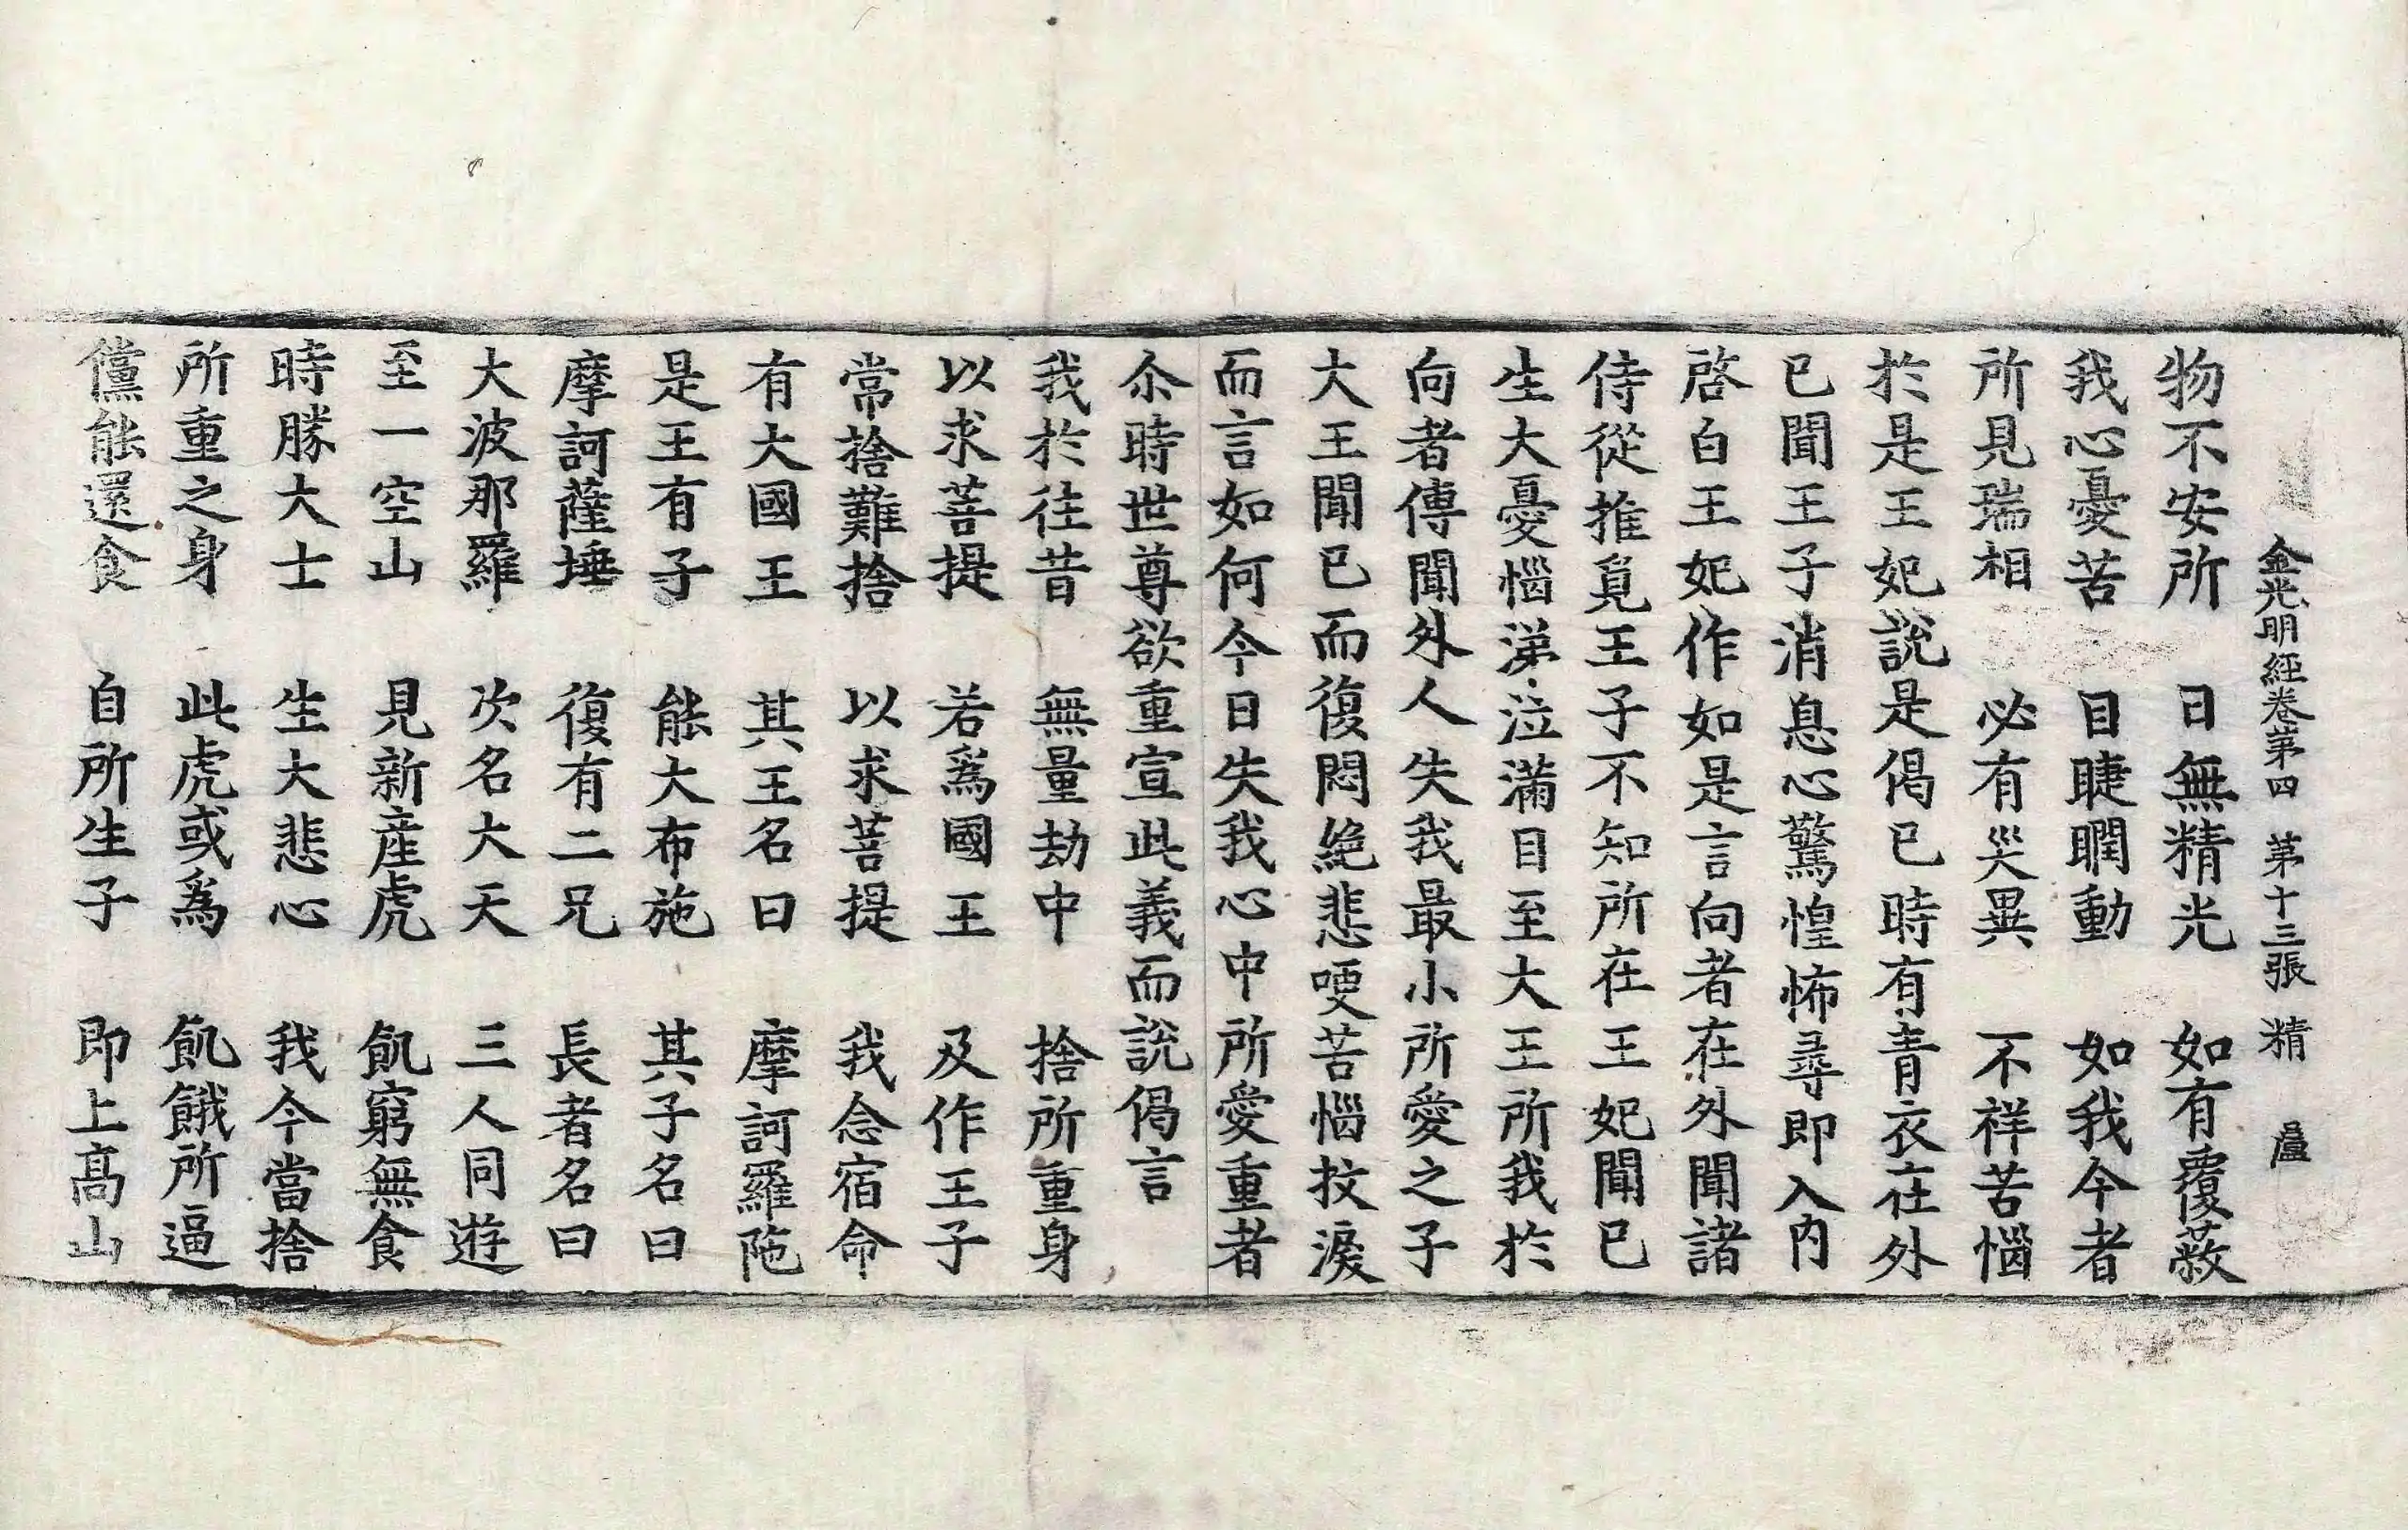 金光明經卷第四 第十三張 精
物不安所 日無精光 如有覆蔽
我心憂苦 目睫瞤動 如我今者
所見瑞相 必有災異 不祥苦惱
於是王妃說是偈已時有青衣在外
已聞王子消息心驚惶怖尋即入內
啓白王妃作如是言向者在外聞諸
侍從推覓王子不知所在王妃聞已
生大憂惱涕泣滿目至大王所我於
向者傳聞外人失我最小所愛之子
大王聞已而復悶絕悲哽苦惱抆淚
而言如何今日失我心中所愛重者
尒時世尊欲重宣此義而說偈言
我於往昔 無量劫中 捨所重身
以求菩提 若爲國王 及作王子
常捨難捨 以求菩提 我念宿命
有大國王 其王名曰 摩訶羅陁
是王有子 能大布施 其子名曰
摩訶薩埵 復有二兄 長者名曰
大波那羅 次名大天 三人同遊
至一空山 見新產虎 飢窮無食
時勝大士 生大悲心 我今當捨
所重之身 此虎或爲 飢餓所逼
儻能還食 自所生子 即上高山